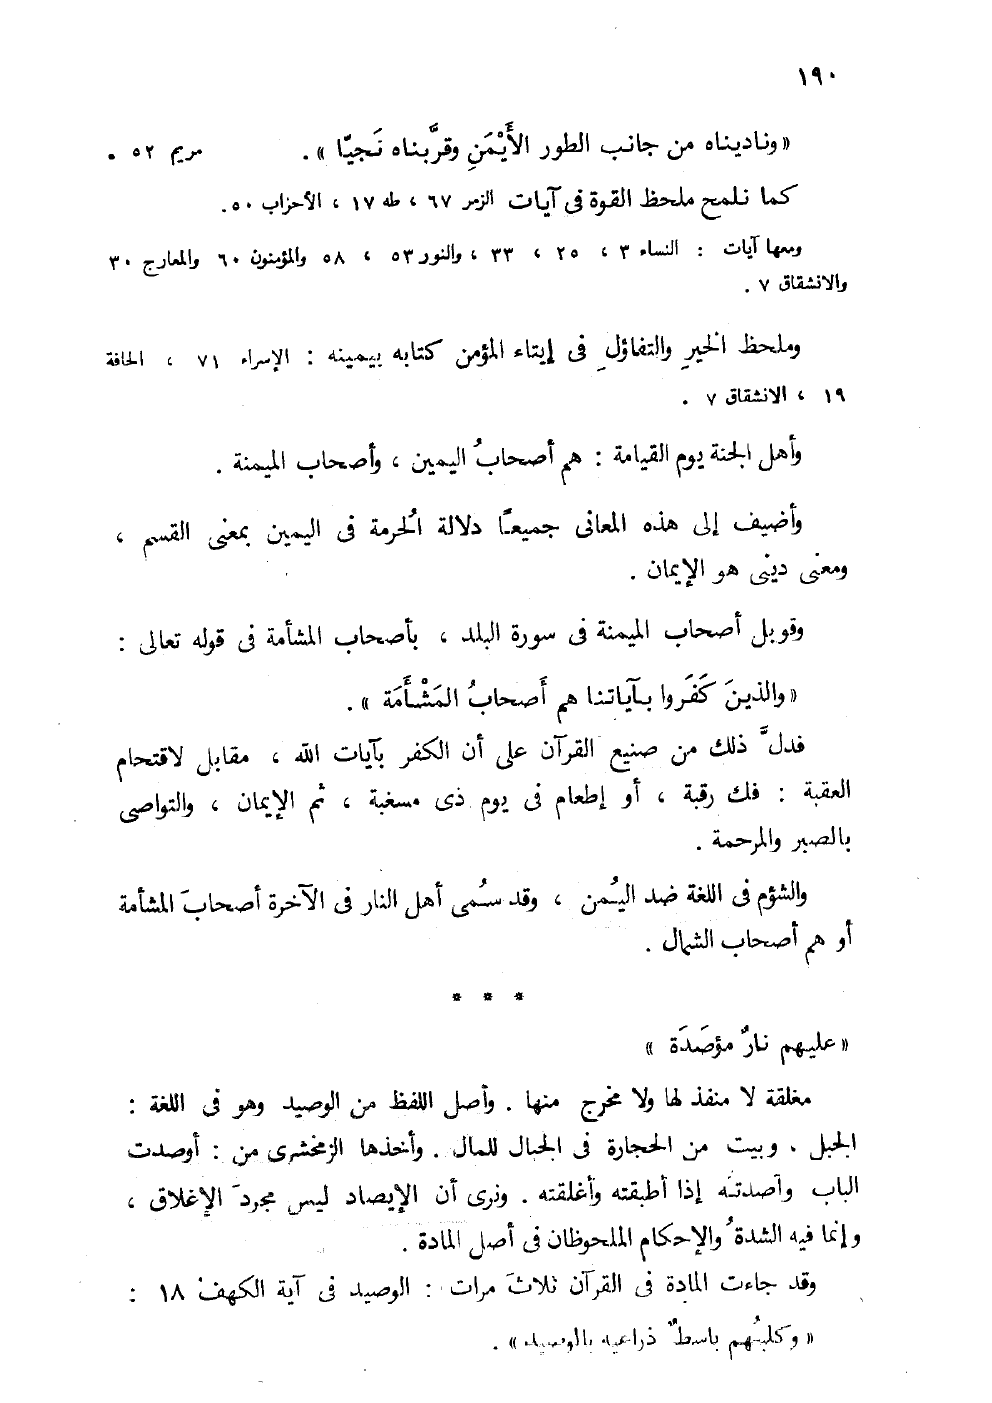 ١٩٠
« وناديناه من جانب الطور الأَيْمَنِ وقرَّبناه نَجيًّا » . مريم ٥٢ .
كما نلمح ملحظ القوة فى آيات الزمر ٦٧ ، طه ١٧ ، الأحزاب ٥٠ .
ومعها آيات : النساء ٣ ، ٢٥ ، ٣٣ ، والنور ٥٣ ، ٥٨ والمؤمنون ٦٠ والمعارج ٣٠
والانشقاق ٧ .
وملحظ الخيرِ والتفاؤلِ فى إيتاء المؤمن كتابه بيمينه : الإسراء ٧١ ، الحاقة
١٩ ، الانشقاق ٧ .
وأهل الجنة يوم القيامة : هم أصحابُ اليمين ، وأصحاب الميمنة .
وأضيف إلى هذه المعانى جميعـًا دلالة الُحرمة فى اليمين بمعنى القسم ،
ومعنى دينى هو الإيمان .
وقوبل أصحاب الميمنة فى سورة البلد ، بأصحاب المشأمة فى قوله تعالى :
« والذينَ كَفَروا بـآياتـنا هم أَصحابُ المَشْأَمَة » .
فدلَّ ذلك من صنيع القرآن على أن الكفر بآيات الله ، مقابل لاقتحام
العقبة : فك رقبة ، أو إطعام فى يوم ذى مسغبة ، ثم الإيمان ، والتواصى
بالصبر والمرحمة .
والشؤم فى اللغة ضد اليُمن ، وقد سُمى أهل النار فى الآخرة أصحابَ المشأمة
أو هم أصحاب الشمال .
* * *
« عليهم نارٌ مؤصَدَة »
مغلقة لا منفذ لها ولا مخرج منها . وأصل اللفظ من الوصيد وهو فى اللغة :
الجبل . وبيت من الحجارة فى الجبال للمال . وأخذها الزمخشرى من : أوصدت
الباب وآصدته إذا أطبقته وأغلقته . ونرى أن الإيصاد ليس مجردَ الإغلاق ،
وإنما فيه الشدةُ والإحكام الملحوظان فى أصل المادة .
وقد جاءت المادة فى القرآن ثلاثَ مرات : الوصيد فى آية الكهف ١٨ :
« وكلبُهم باسطٌ ذراعيه بالوصيد » .